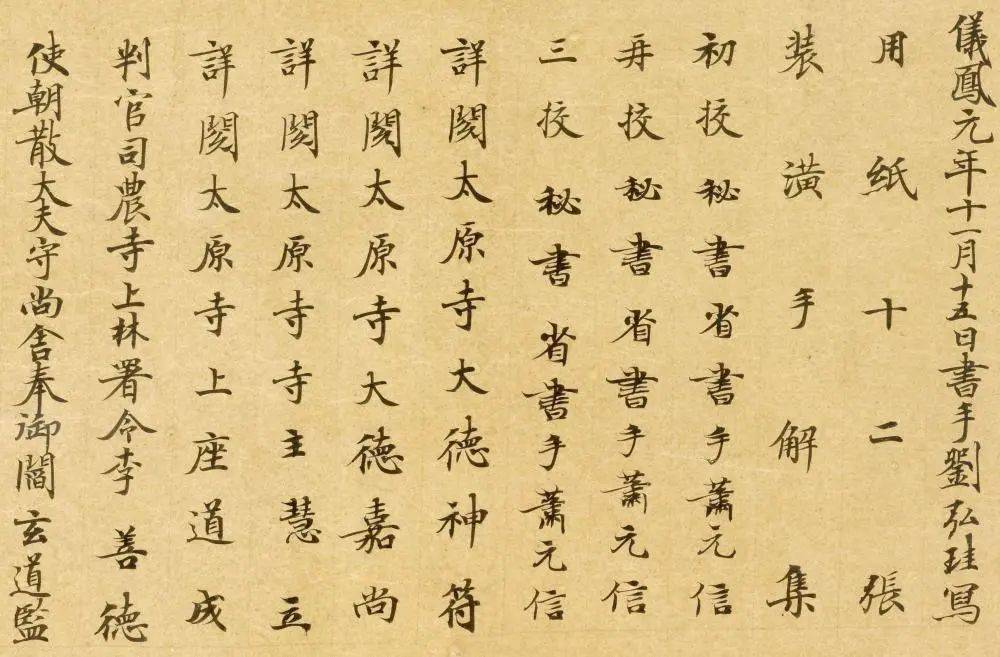 儀鳳元年十一月十五日書手劉弘珪寫
用紙十二張
裝潢手解集
初挍秘書省書手蕭元信
再挍秘書省書手蕭元信
三挍秘書省書手蕭元信
詳閱太原寺大德神符
詳閱太原寺大德嘉尚
詳閱太原寺寺主慧立
詳閱太原寺上座道成
判官司農寺上林署令李善德
使朝散大夫守尚舍奉御閻玄道監